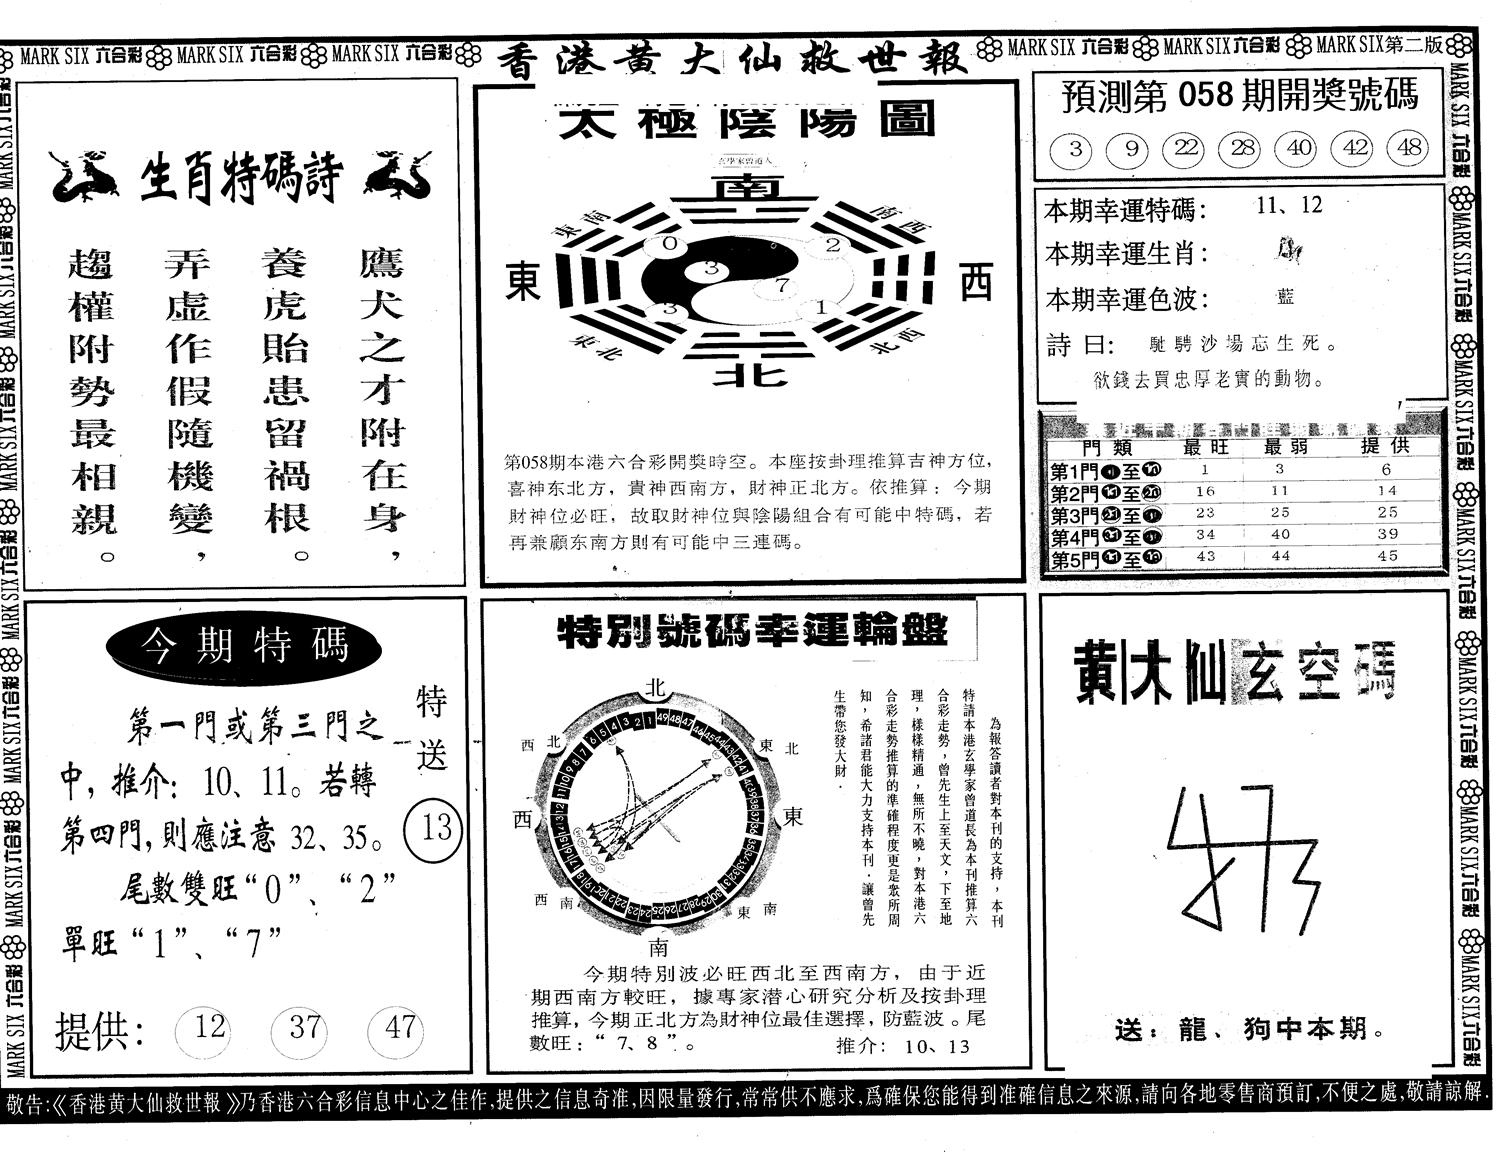 MARK SIX 六合彩 MARK SIX 六合彩 MARK SIX 六合彩
香港黄大仙救世報
MARK SIX 六合彩 MARK SIX 六合彩 MARK SIX 第二版
生肖特碼詩
鷹犬之才附在身，
養虎貽患留禍根。
弄虛作假隨機變，
趨權附勢最相親。
太極陰陽圖
玄學家曾道人
南
東南
南西
東
西
東北
北西
北
0
2
3
7
3
1
第058期本港六合彩開獎時空。本座按卦理推算吉神方位，
喜神东北方，貴神西南方，財神正北方。依推算：今期
財神位必旺，故取財神位與陰陽組合有可能中特碼，若
再兼顧东南方則有可能中三連碼。
預測第 058 期開獎號碼
3 9 22 28 40 42 48
本期幸運特碼： 11、12
本期幸運生肖：
本期幸運色波： 藍
詩曰： 馳騁沙場忘生死。
欲錢去買忠厚老實的動物。
門類 最旺 最弱 提供
第1門 至 1 3 6
第2門 至 16 11 14
第3門 至 23 25 25
第4門 至 34 40 39
第5門 至 43 44 45
今期特碼
第一門或第三門之
中，推介：10、11。若轉
第四門，則應注意 32、35。
尾數雙旺“0”、“2”
單旺“1”、“7”
特送
13
提供： 12 37 47
特別號碼幸運輪盤
北
西北
東北
西
東
西南
東南
南
為報答讀者對本刊的支持，本刊
特請本港玄學家曾道長為本刊推算六
合彩走勢，曾先生上至天文，下至地
理，樣樣精通，無所不曉，對本港六
合彩走勢推算的準確程度更是眾所周
知，希諸君能大力支持本刊．讓曾先
生帶您發大財．
今期特別波必旺西北至西南方，由于近
期西南方較旺，據專家潜心研究分析及按卦理
推算，今期正北方為財神位最佳選擇，防藍波。尾
數旺：“7、8”。 推介：10、13
黄大仙玄空碼
送：龍、狗中本期。
敬告：《香港黄大仙救世報》乃香港六合彩信息中心之佳作，提供之信息奇准，因限量發行，常常供不應求，爲確保您能得到准確信息之來源，請向各地零售商預訂，不便之處，敬請諒解．